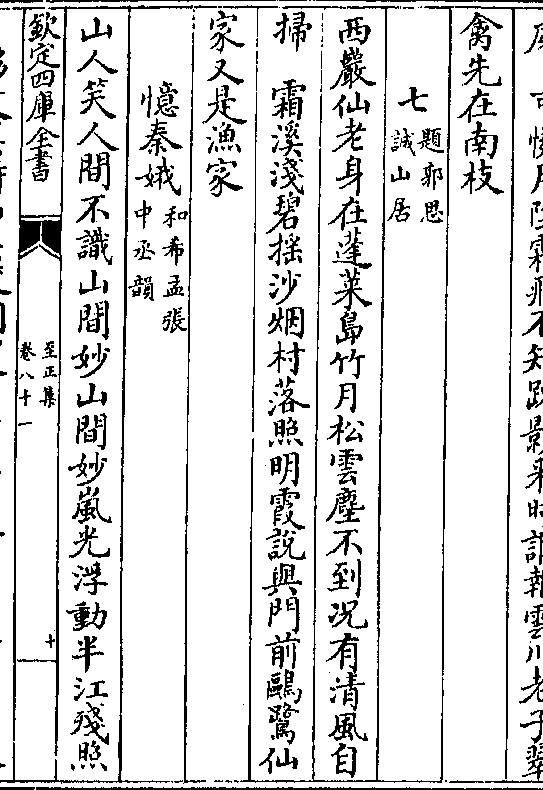 可憐月墮霜飛不知踈影來時説報雲川老子翠
禽先在南枝
七題郭思誠山居
西巖仙老身在蓬萊島竹月松雲塵不到况有清風自
掃　霜溪淺碧揺沙烟村落照明霞説與門前鷗鷺仙
家又是漁家
憶秦娥和希孟張中丞韻
山人笑人間不識山間妙山間妙嵐光浮動半江殘照
欽定四庫全書
至正集
卷八十一
十